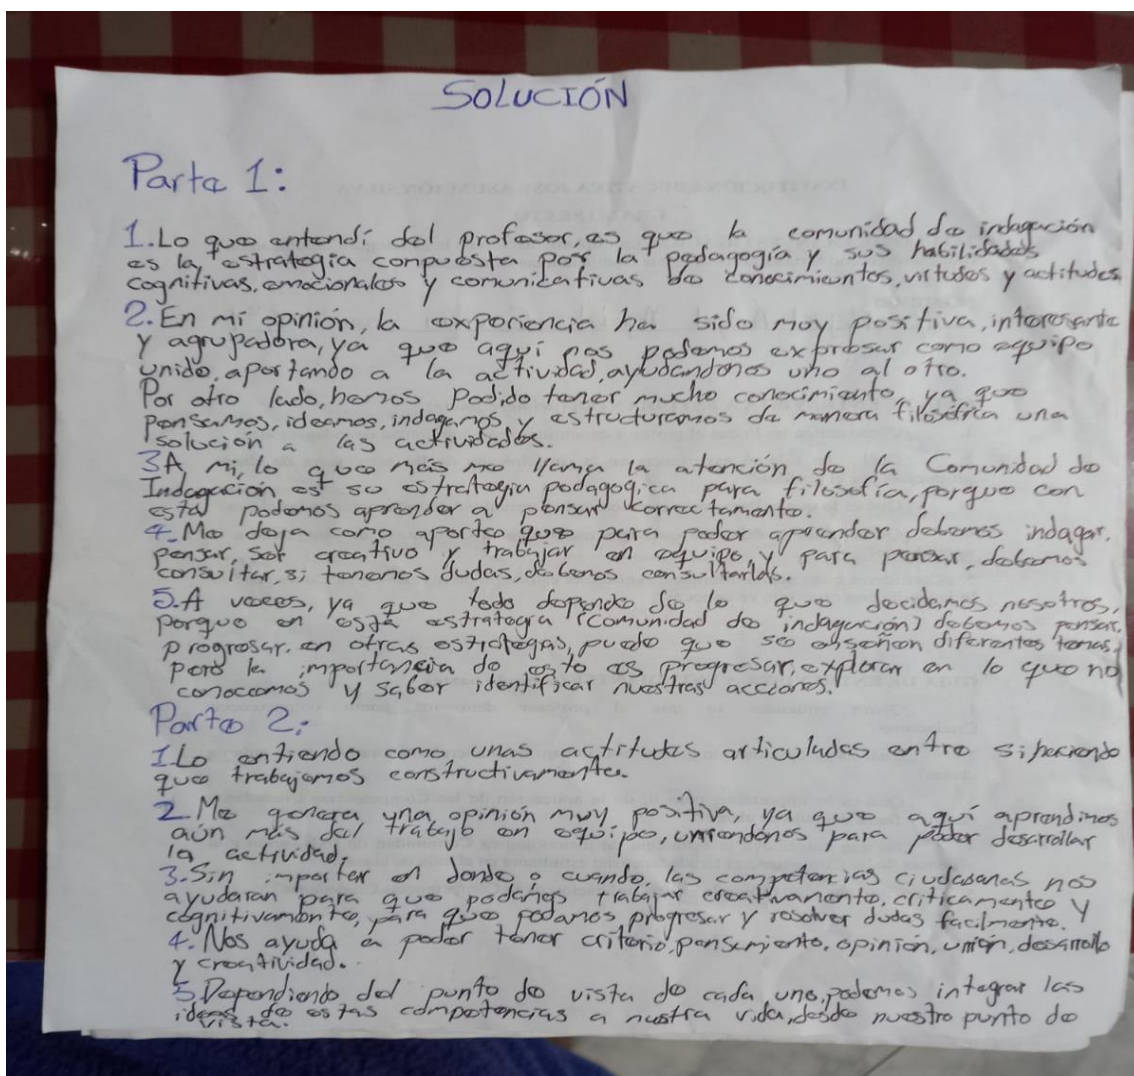 SOLUCIÓN
Parte 1:
1. Lo que entendí del profesor, es que la comunidad de indagación
es la estrategia compuesta por la pedagogía y sus habilidades
cognitivas, emocionales y comunicativas de conocimientos, virtudes y actitudes
2. En mi opinión, la experiencia ha sido muy positiva, interesante
y agrupadora, ya que aquí nos podemos expresar como equipo
unido, aportando a la actividad, ayudándonos uno al otro.
Por otro lado, hemos podido tener mucho conocimiento, ya que
pensamos, ideamos, indagamos y estructuramos de manera filosófica una
solución a las actividades.
3A mi, lo que más me llama la atención de la Comunidad de
Indagación es su estrategia pedagogica para filosofía, porque con
esta podemos aprender a pensar correctamente.
4. Me deja como aporte que para poder aprender debemos indagar,
pensar, ser creativo y trabajar en equipo, y para pensar, debemos
consultar, si tenemos dudas, debemos consultarlas.
5. A veces, ya que todo depende de lo que decidamos nosotros,
porque en esta estrategia (comunidad de indagación) debemos pensar,
progresar, en otras estrategas, puede que se enseñen diferentes temas,
pero la importancia de esto es progresar, explorar en lo que no
conocemos y saber identificar nuestras acciones.
Parte 2:
1. Lo entiendo como unas actitudes articuladas entre si, haciendo
que trabajemos constructivamente.
2. Me genera una opinión muy positiva, ya que aquí aprendimos
aún más del trabajo en equipo, uniendonos para poder desarrollar
la actividad.
3. Sin importar en donde o cuando, las competencias ciudadanas nos
ayudaran para que podamos trabajar creativamente, críticamente y
cognitivamente, para que podamos progresar y resolver dudas facilmente.
4. Nos ayuda a poder tener criterio, pensamiento, opinión, unión, desarrollo
y creatividad.
5. Dependiendo del punto de vista de cada uno, podemos integrar las
ideas de estas competencias a nuestra vida, desde nuestro punto de
vista.